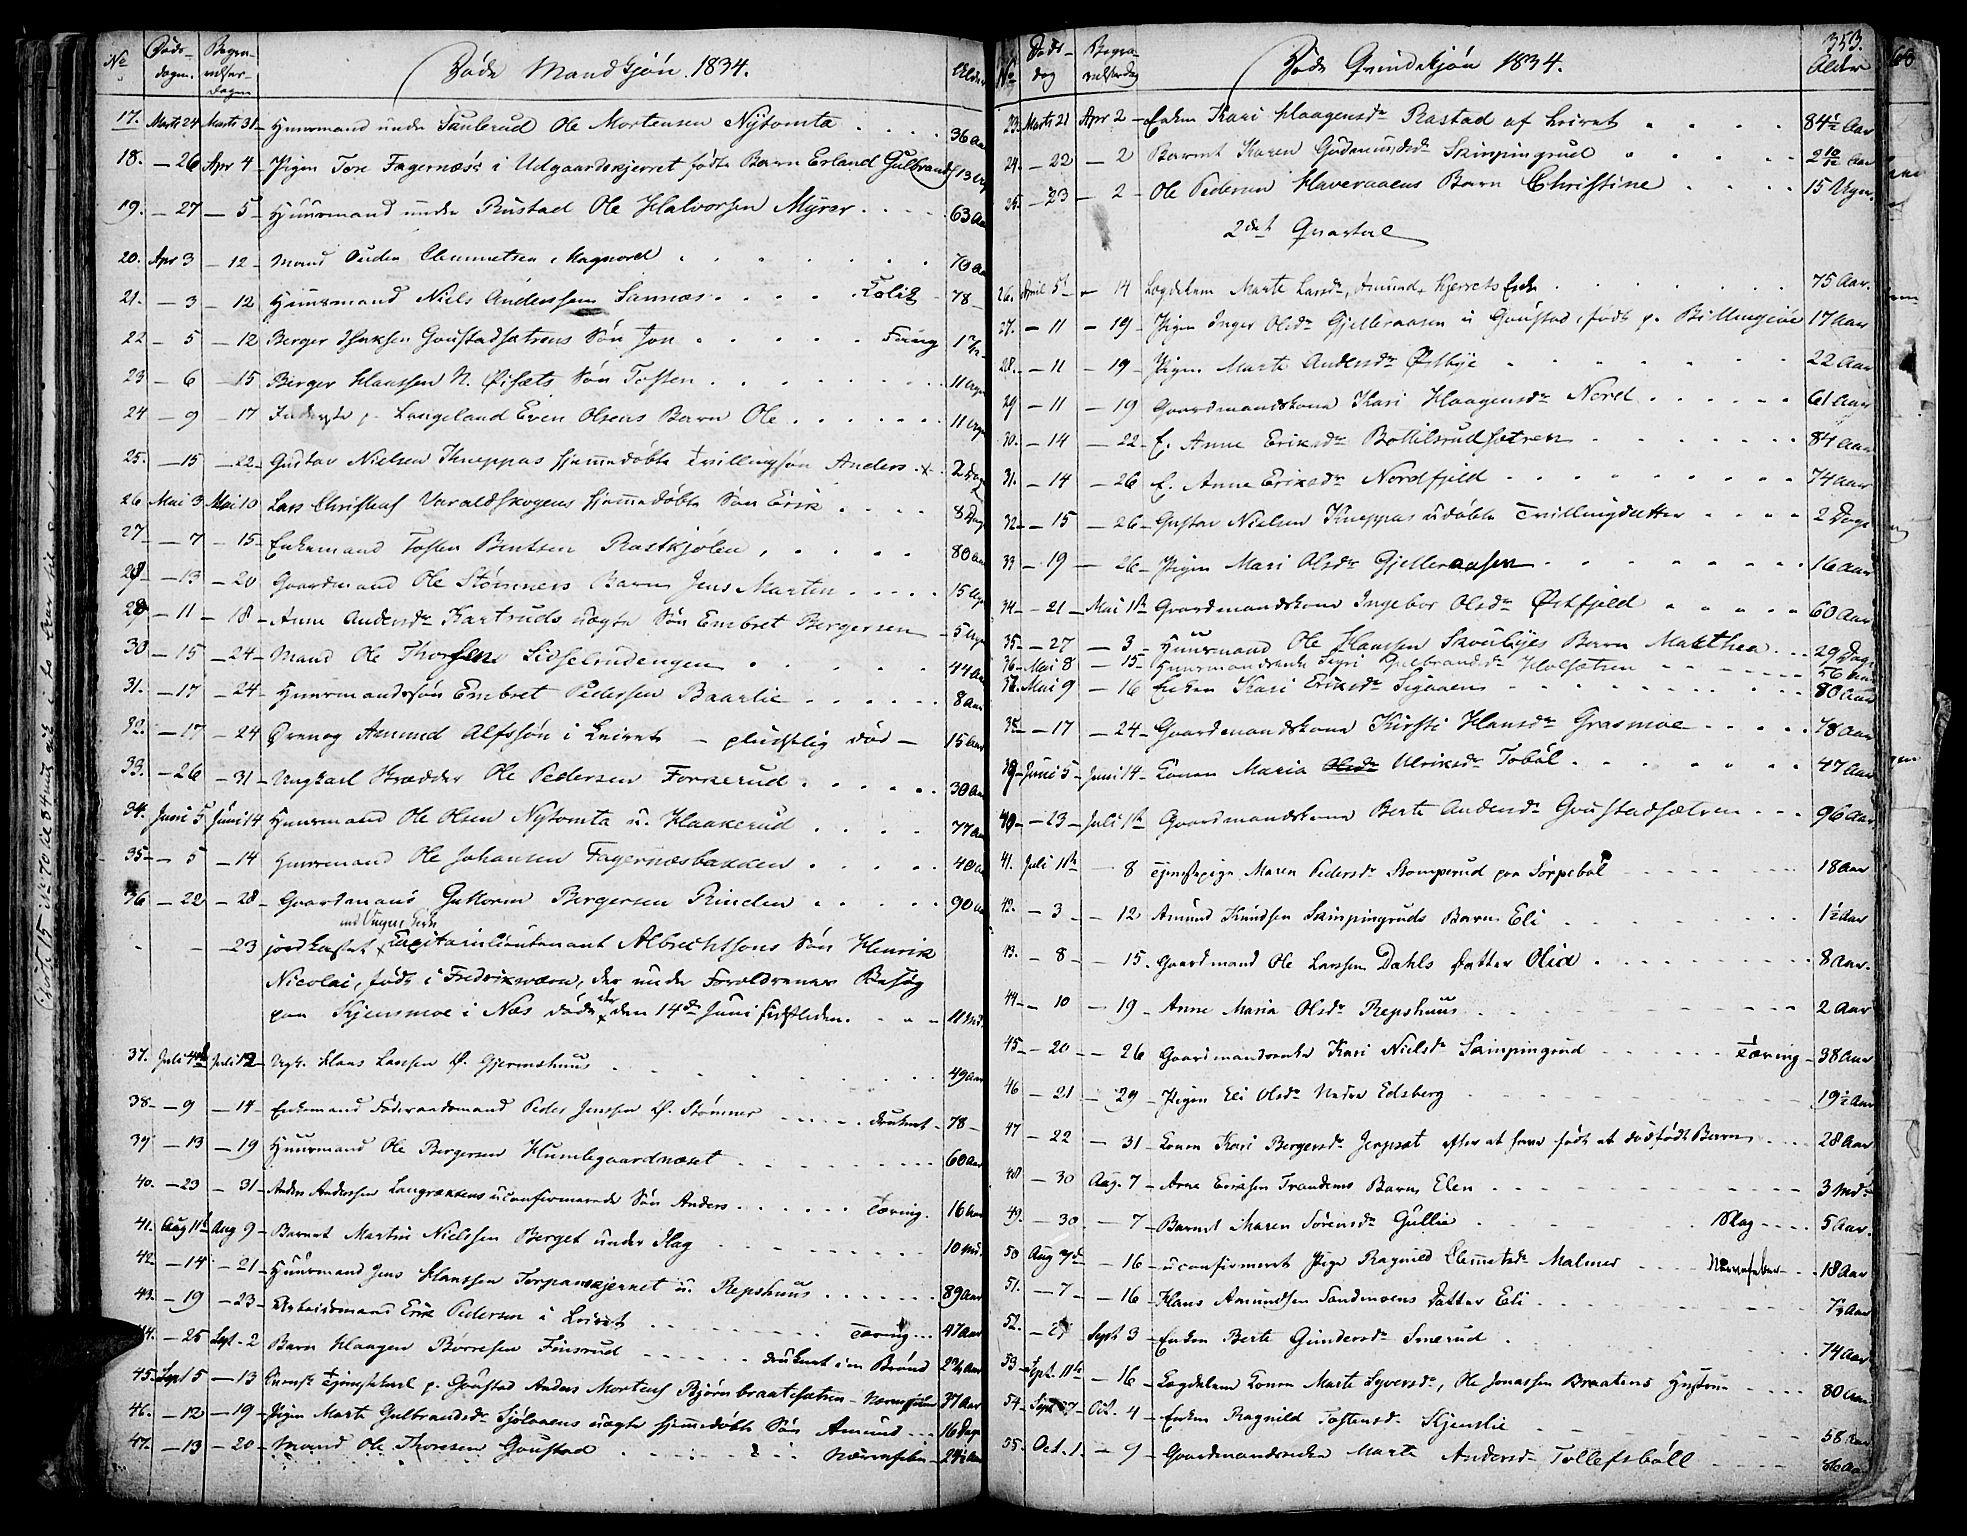 No Døds-dagen. Begravelses-dagen Døde Mandkjøn. 1834. Alder
17. Marts 24 Marts 31 Huusmand under Ole Mortensen Nytomta 36 Aar
18. - 26 Apr 4 Pigen Tore Fagernæss i Udgaardskjerret fødte Barn Erland Gulbrands 13 Uger
19. - 27 - 5 Huusmand under Rustad Ole Halvorsen Myrer 63 Aar
20. Apr 3 - 12 Mand Ouden Clemmetsen Magnord 70 Aar
21. - 3 - 12 Huusmand Niels Anderssen Sannæs Kolik 78
22 - 5 - 12 Berger Goustadsætrens Søn Jon
23 - 6 - 15 Berger Haassen N. Øisæts Søn Tosten 11 Uger
24 - 9 - 17 Inderste p. Langeland Even Olsens Barn Ole 11 Uger
25. - 15 - 22 Gustav Nielsen Kneppas hjemmedøbte Tvillingsøn Anders 2 Dage
26 Mai 3 Mai 10 Lars Varaldskogens hjemmedøbte Søn Erik 8 Dage
27 - 7 - 15 Enkemand Tosten Bentsen Rastkjølen 80 Aar
28 - 13 - 20 Gaardmand Ole Stømners Barn Jens Martin 15 Uger
29 - 11 - 18 Anne Andersdr Kartruds uægte Søn Embret Bergersen 5 Uger
30 - 15 - 24 Mand Ole Thorsen Sidselrudengen 44 Aar
31. - 17 - 24 Huusmandssøn Embret Pederssen Baarlie 8 Aar
32. - 17 - 24 Dreng Amund Alfssøn i Leiret - pludstlig død - 15 Aar
33. - 26 - 31 Ungkarl Skrædder Ole Pedersen Forkerud 30 Aar
34. Juni 5 Juni 14 Huusmand Ole Olsen Nytomta u. Haakerud 77 Aar
35 - 5 - 14 Huusmand Ole Johansen Fagernæsbakken 40 Aar
36 - 22 - 28 Gaardmand Guttorm Bergersen Rinden 90 Aar
- 23 jordkastet Capitainlieutenant Albrechtsons Søn Henrik
Nicolai, født i Fredriksværn, der under Forældrenes Besøg
paa Kjensmoe i Næs døde der den 14de Juni sidstleden. 11 Md.
37. Juli 4de Juli 12 Ungk. Hans Larssen Ø. Gjermshuus 49 Aar
38 - 9 - 14 Enkemand Føderaadsmand Peder Jenssen Ø. Stømner druknet 78
39 - 13 - 19 Huusmand Ole Bergersen Humlegaardnæset 60 Aar
40. - 23 - 31 Anders Anderssen Langrækkens uconfirmerede Søn Anders Tæring. 16 Aar
41. Aug 1ste Aug 9 Barnet Martin Nielssen Berget under Hag 10 Md.
42. - 14 - 21 Huusmand Jens Hanssen Torpanskjerret u. Repshuus 89 Aar
43. - 19 - 23 Arbeidsmand Erik Pedersen i Leiret Tæring 47 Aar
44. - 25 Sept. 2 Barn Haagen Børresen Finsrud druknet i en Brønd 2½ Aar
45. Sept 5 - 13 Svensk Tjenstekarl p. Goustad Anders Mortens Bjørnbraatesætren Nervefeber 37 Aar
46. - 12 - 19 Pigen Marte Gulbrandsdr Sjølaaens uægte hjemmedøbte Søn Amund 16 Dage
47. - 13 - 20 Mand Ole Thoresen Goustad Nervefeber 24½ Aar
No Døds-dag Begravelsesdag Døde Qvindekjøn 1834. 353. Alder
23. Marts 21 Apr 2 Enken Kari Haagensdr Rastad af Leiret 84½ Aar
24. - 22 - 2 Barnet Karen Gudmundsdr Skinpingrud 2 10/12 Aar
25. - 23 - 2 Ole Pedersen Haveraaens Barn Christine 15 Uger.
2det Quartal
26. April 5te - 14 Lægdelem Marte Larsdr, Amund Kjerrets Enke 75 Aar.
27. - 11 - 19 Pigen Inger Olsdr Gjelleraasen u Goustad, født p. Billingsøe 17 Aar
28. - 11 - 19 Pigen Marte Andersdr Østbye 22 Aar
29 - 11 - 19 Gaardmandskone Kari Haagensdr Nord 61 Aar
30. - 14 - 22 E. Anne Eriksdr Bottilsrudsætren 84 Aar
31. - 14 - 26 E. Anne Eriksdr Nordfjeld 74 Aar
32 - 15 - 26 Gustav Nielsen Kneppas udøbte Tvillingdatter 2 Dage
33 - 19 - 26 Pigen Mari Olsdr Gjelleraasen 16 Aar
34. - 21 Mai 1ste Gaardmandskone Ingebor Olsdr Østfjeld 60 Aar
35 - 27 - 3 Huusmand Ole Hansen Skoulyes Barn Matthea 29 Dage
36 Mai 8 - 15 Huusmandsenke Sigri Gulbrandsdr Holsætren 56 Aar
37. Mai 9 - 16 Enken Kari Eriksdr Sigaaens 80 Aar
38 - 17 - 24 Gaardmandskone Kirsti Hansdr Grasmoe 78 Aar
39 Juni 5 Juni 14 Konen Maria Olsdr Ulriksdr Tobøl 47 Aar
40 - 23 Juli 1ste Gaardmandskone Berte Andersdr Goustadsætren 96 Aar
41. Juli 1ste - 8 Tjenstepige Maren Pedersdr Stomperud paa Sorpebøl 18 Aar
42. - 3 - 12 Amund Knudsen Skinpingruds Barn Eli 1½ Aar
43. - 8 - 15. Gaardmand Ole Larssen Dahls Datter Olia 8 Aar.
44 - 10 - 19 Anne Maria Olsdr Repshuus 2 Aar
45 - 20 - 26 Gaardmandsenke Kari Nielsdr Skinpingrud Tæring 38 Aar
46 - 21 - 29 Pigen Eli Olsdr Nedre Edsberg 19½ Aar
47 - 22 - 31 Konen Kari Bergersdr Jerpset efter at have født et dødfødt Barn 28 Aar
48 - 30 Aug. 7 Arne Ericsen Trandems Barn Elen 3 Mdr
49. - 30. - 7 Barnet Maren Sørensdr Gullie Slag 5 Aar.
50 Aug 7de - 16 uconfirmeret Pige Ragnild Clemetsdr Malmer Nervefeber 18 Aar
51. - 7 - 16 Hans Amundsen Sandmoens Datter Eli 7½ Aar
52. - 27 Sept 3 Enken Berte Gundersdr Snerud 74 Aar
53 Sept. 11te - 16 Lægdelem Konen Marte Syversdr, Ole Jonassen Braatens Hustrue 80 Aar
54 Sept 27 Oct. 4 Enken Ragnild Tostensdr Kjenslie 58 Aar
55. Oct. 1. - 9 Gaardmandsenke Marte Andersdr Tollefsbøll 86 Aar